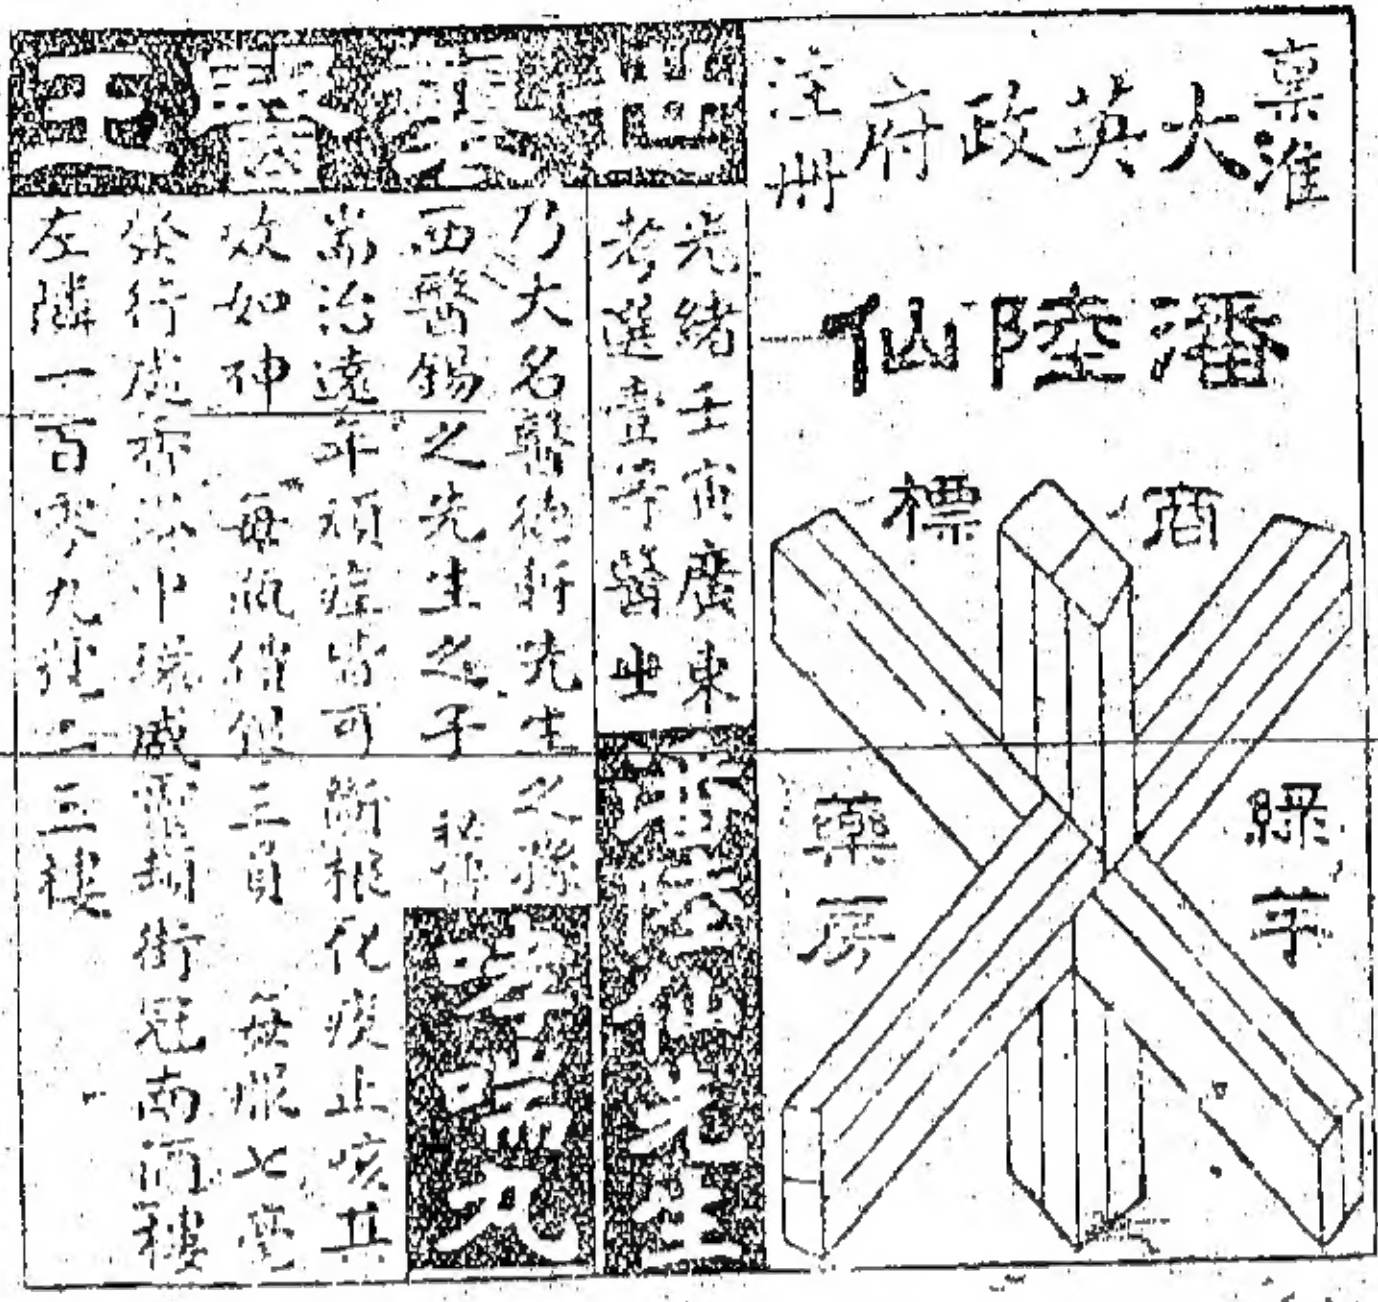 稟准
大英政府
注冊
潘陸仙
商標
綠苹
藥房
世襲醫王
光緒壬寅廣東
考選壹等醫士
潘陸仙先生
乃大名醫德昕先生之孫
西醫錫之先生之子
哮喘丸
耑治遠年頑症皆可斷根化痰止咳其
效如神
每瓶價銀三員 每服七
發行處香港中環威靈頓街冠南酒樓
左隣一百零九號二三樓